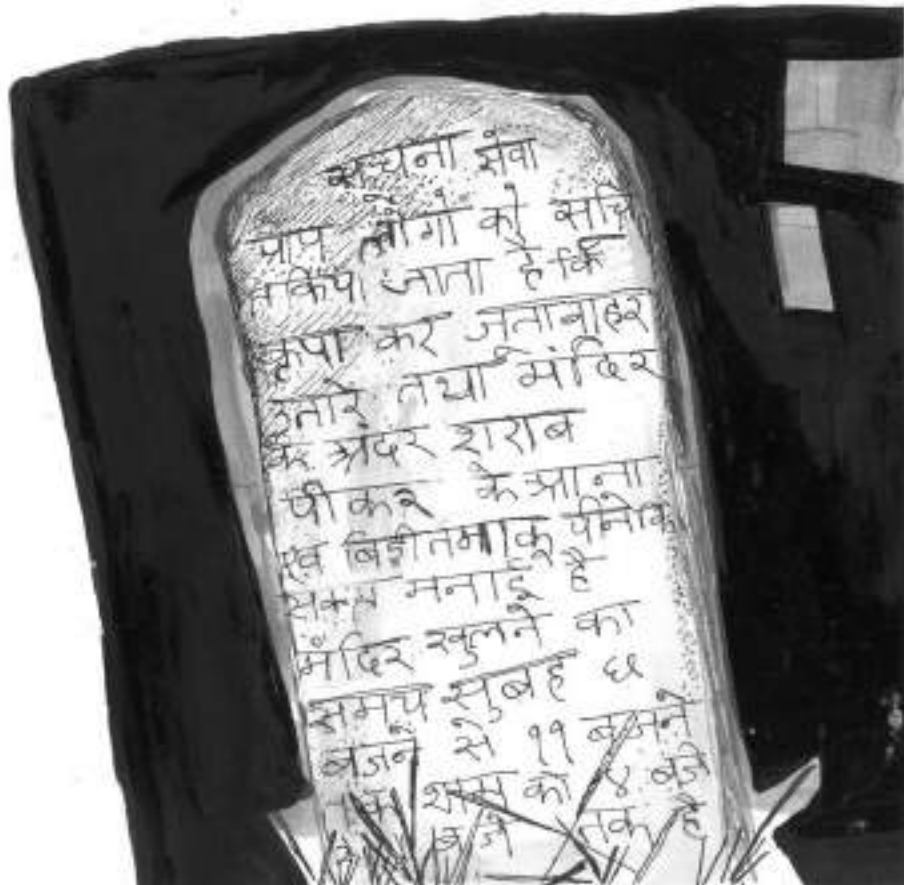 सूचना सेवा
आप लोगो को सूचि
त किया जाता है कि
कृपा कर जूता बाहर
उतारे तथा मंदिर
के अंदर शराब
पीकर के आना
एवं बिड़ी तमाकू पीने क
सक्त मनाई है
मंदिर खुलने का
समय सुबह ६
बजने से ११ बजने
तक शाम को ४ बजे
बजे तक है